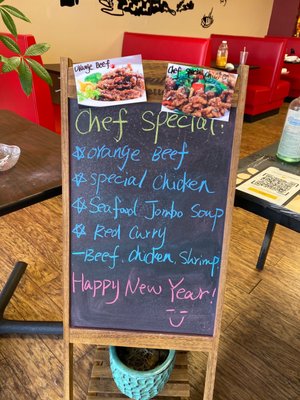 Orange Beef
Chef Special Chicken
Chef Special!
☆ Orange Beef
☆ Special Chicken
☆ Seafood Jombo Soup
☆ Red Curry
- Beef. Chicken. Shrimp
Happy New Year!